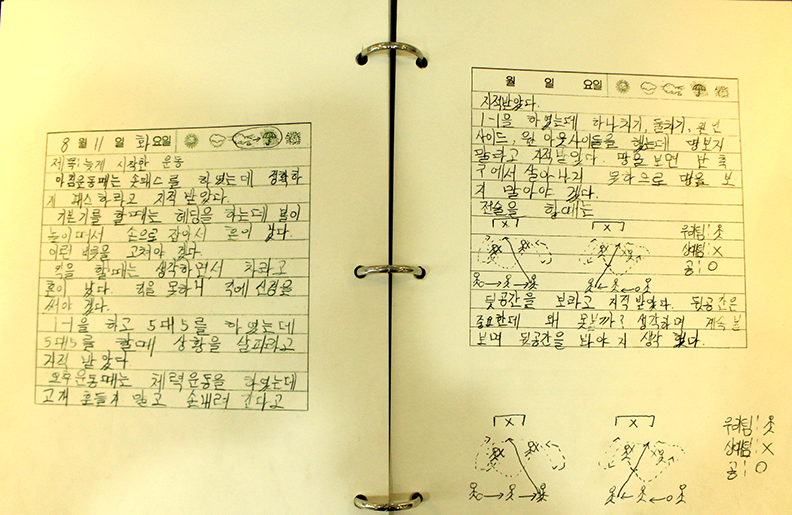 8 월 11 일 화 요일
제목: 늦게 시작한 운동
아침운동때는 숏패스를 하였는데 정확하
게 패스 하라고 지적 받았다.
기본기를 할때는 헤딩을 하는데 볼이
높이떠서 손으로 잡아서 혼이 났다.
이런 버릇을 고쳐야 겠다.
킥을 할때는 생각하면서 차라고
혼이 났다. 킥을 못하니 킥에 신경을
써야 겠다.
1-1을 하고 5대5를 하였는데
5대5를 할때 상황을 살피라고
지적 받았다.
오후운동때는 체력운동을 하였는데
고개 흔들지 말고 손내려 간다고
월 일 요일
지적받았다.
1-1을 하였는데 하나치기, 둘치기, 원 인
사이드, 원 아웃사이드를 했는데 땅보지
말라고 지적받았다. 땅을 보면 난 축
구에서 살아나지 못하므로 땅을 보
지 말아야 겠다.
전술을 할때는
우리팀:
상대팀: X
공: O
뒷공간을 보라고 지적 받았다. 뒷공간은
중요한데 왜 못볼까? 생각하며 계속 볼
보며 뒷공간을 봐야 지 생각 했다.
우리팀:
상대팀: X
공: O